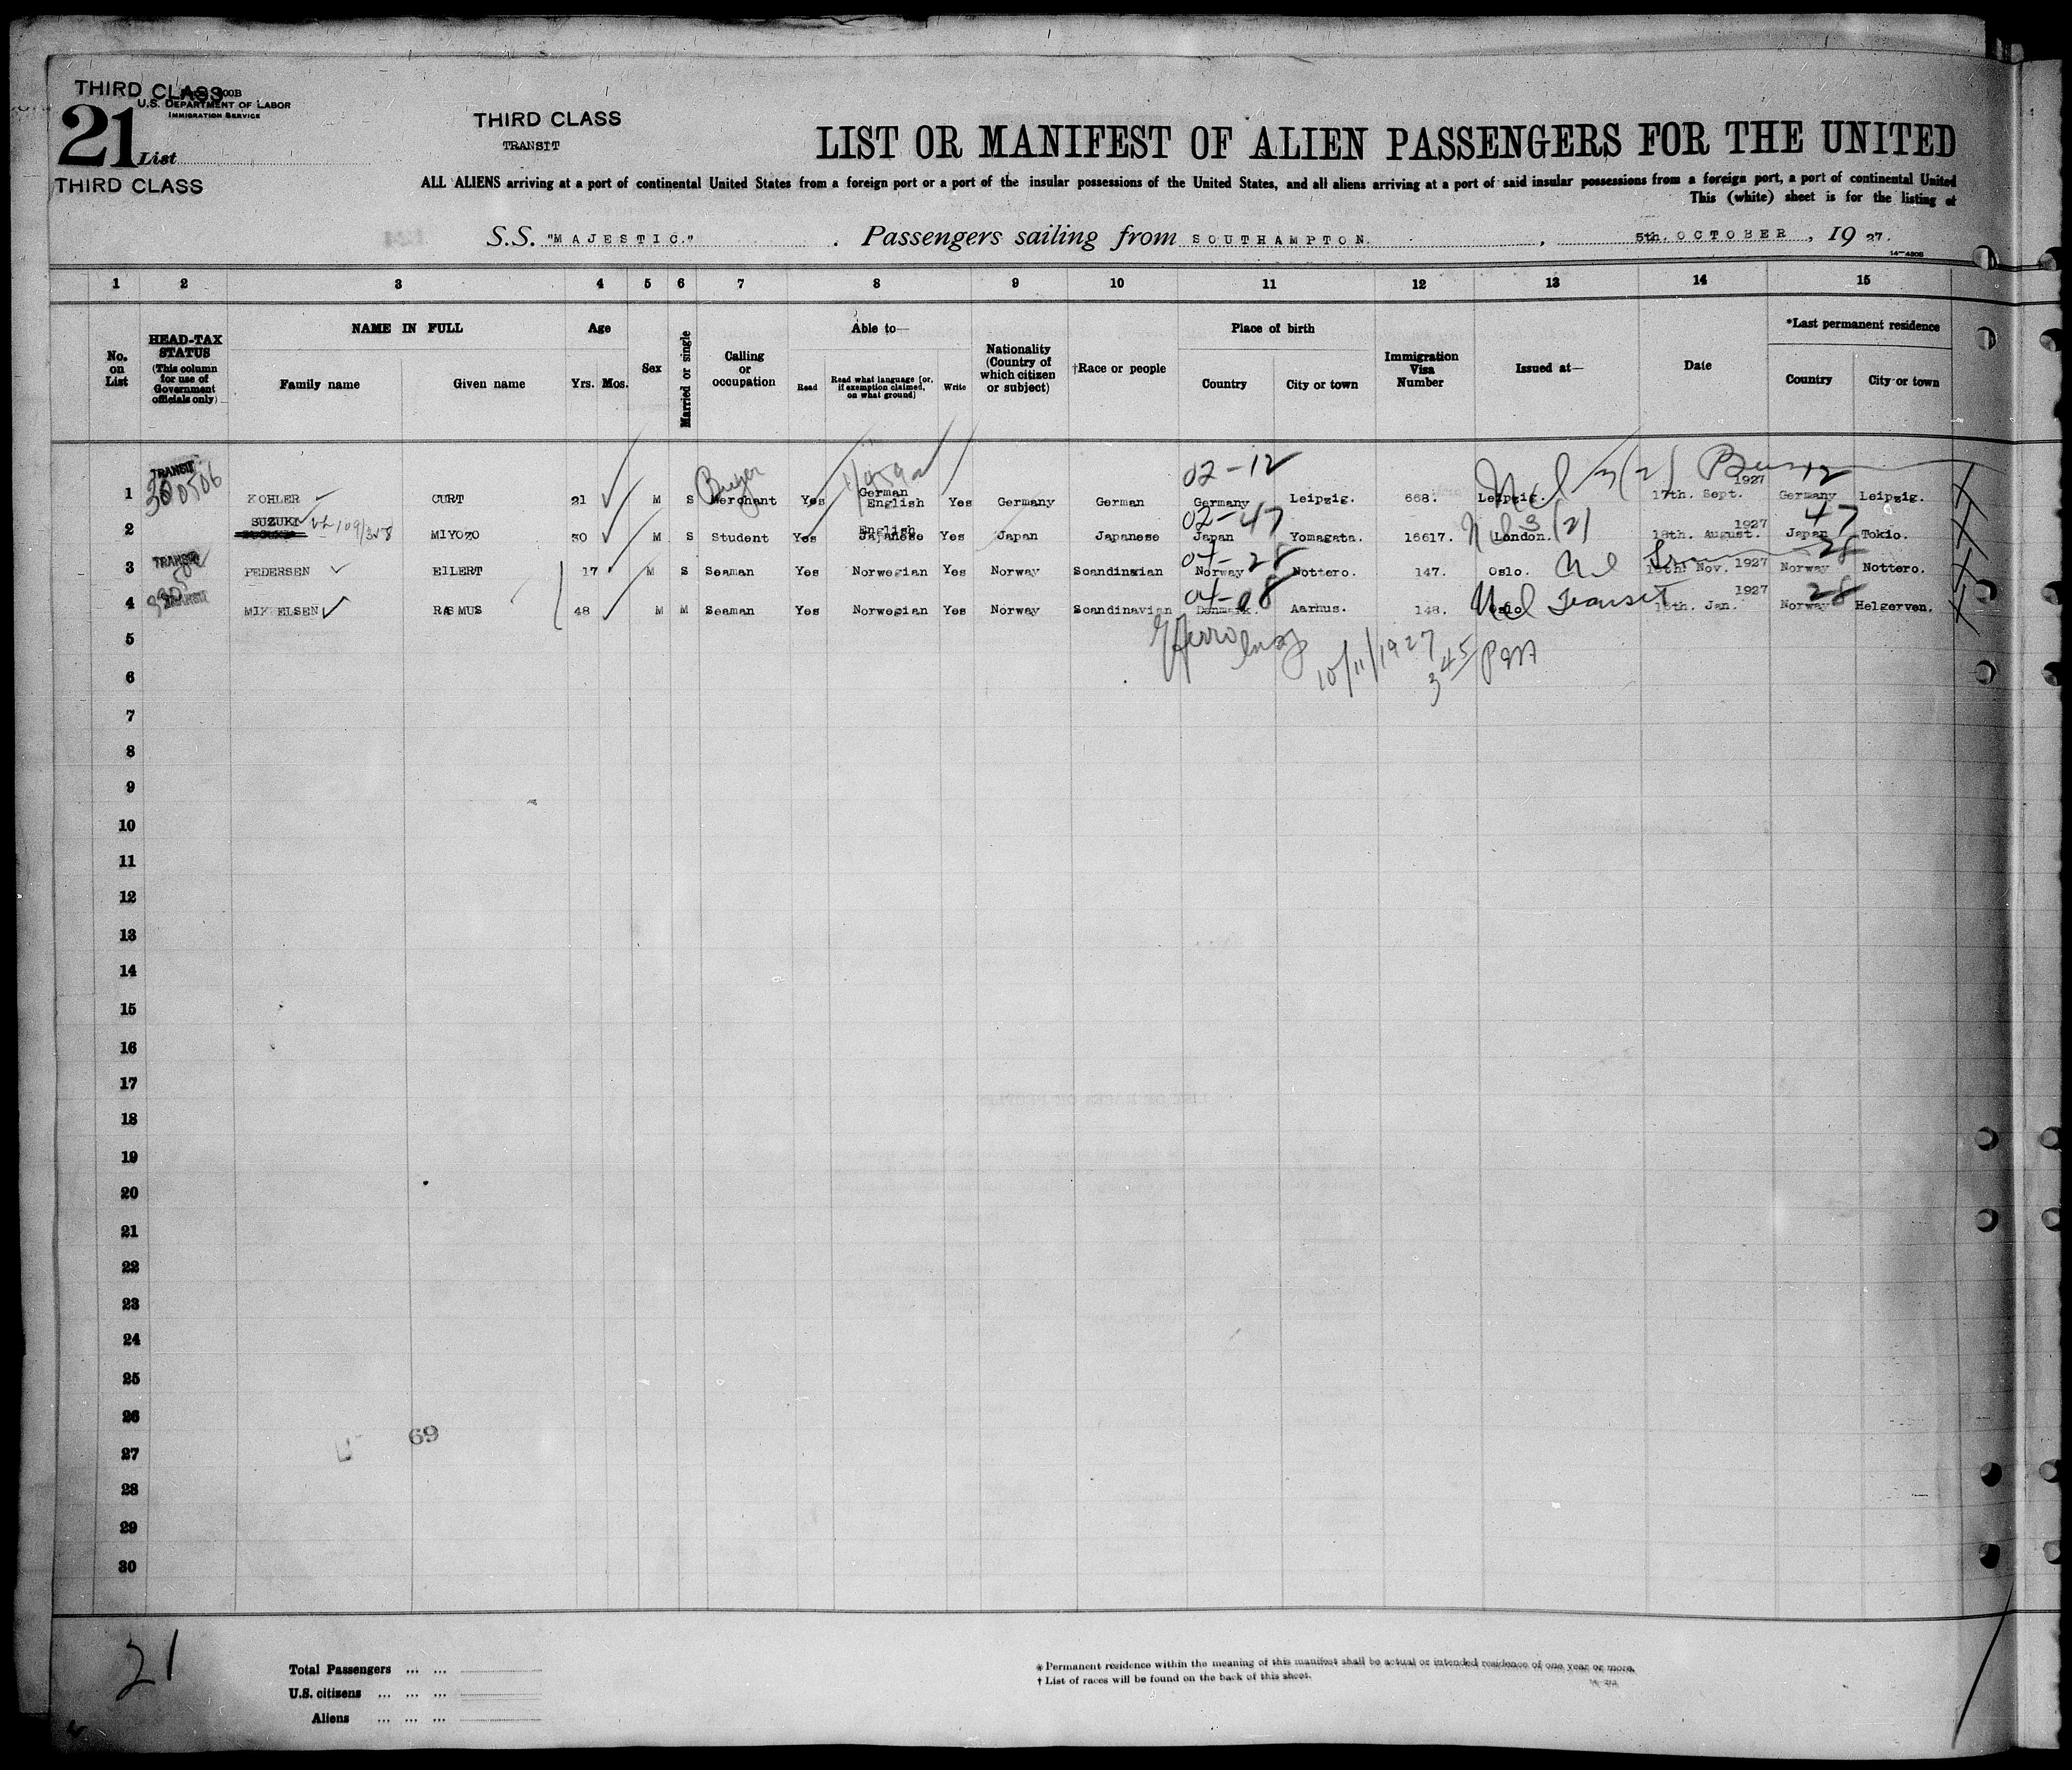 THIRD CLASS
U.S. DEPARTMENT OF LABOR
IMMIGRATION SERVICE
21 List
THIRD CLASS
THIRD CLASS
TRANSIT
LIST OR MANIFEST OF ALIEN PASSENGERS FOR THE UNITED
ALL ALIENS arriving at a port of continental United States from a foreign port or a port of the insular possessions of the United States, and all aliens arriving at a port of said insular possessions from a foreign port, a port of continental United
This (white) sheet is for the listing of
S.S. "MAJESTIC." Passengers sailing from SOUTHAMPTON. , 5th. OCTOBER , 19 27.
1 2 3 4 5 6 7 8 9 10 11 12 13 14 15
No. on List
HEAD-TAX STATUS (This column for use of Government officials only)
NAME IN FULL
Family name Given name
Age
Yrs. Mos.
Sex
Married or single
Calling or occupation
Able to—
Read Read what language [or, if exemption claimed, on what ground] Write
Nationality (Country of which citizen or subject)
†Race or people
Place of birth
Country City or town
Immigration Visa Number
Issued at—
Date
*Last permanent residence
Country City or town
TRANSIT Buyer 02-12 12
1 KOHLER CURT 21 M S Merchant Yes German English Yes Germany German Germany Leipzig. 668. Leipzig. 17th. Sept. 1927 Germany Leipzig.
02-47 47
2 SUZUKI MIYOZO 30 M S Student Yes English Japanese Yes Japan Japanese Japan Yomagata. 16617. London. 18th. August. 1927 Japan Tokio.
TRANSIT 04-28 28
3 PEDERSEN EILERT 17 M S Seaman Yes Norwegian Yes Norway Scandinavian Norway Nottero. 147. Oslo. Nov. 1927 Norway Nottero.
TRANSIT 04-08 Transit 28
4 MIKKELSEN RASMUS 48 M M Seaman Yes Norwegian Yes Norway Scandinavian Denmark. Aarhus. 148. Oslo Jan. 1927 Norway Helgerven.
10/11/1927 3 45 PM
5
6
7
8
9
10
11
12
13
14
15
16
17
18
19
20
21
22
23
24
25
26
69
27
28
29
30
21
Total Passengers ... ...
U.S. citizens ... ... ...
Aliens ... ... ...
* Permanent residence within the meaning of this manifest shall be actual or intended residence of one year or more.
† List of races will be found on the back of this sheet.